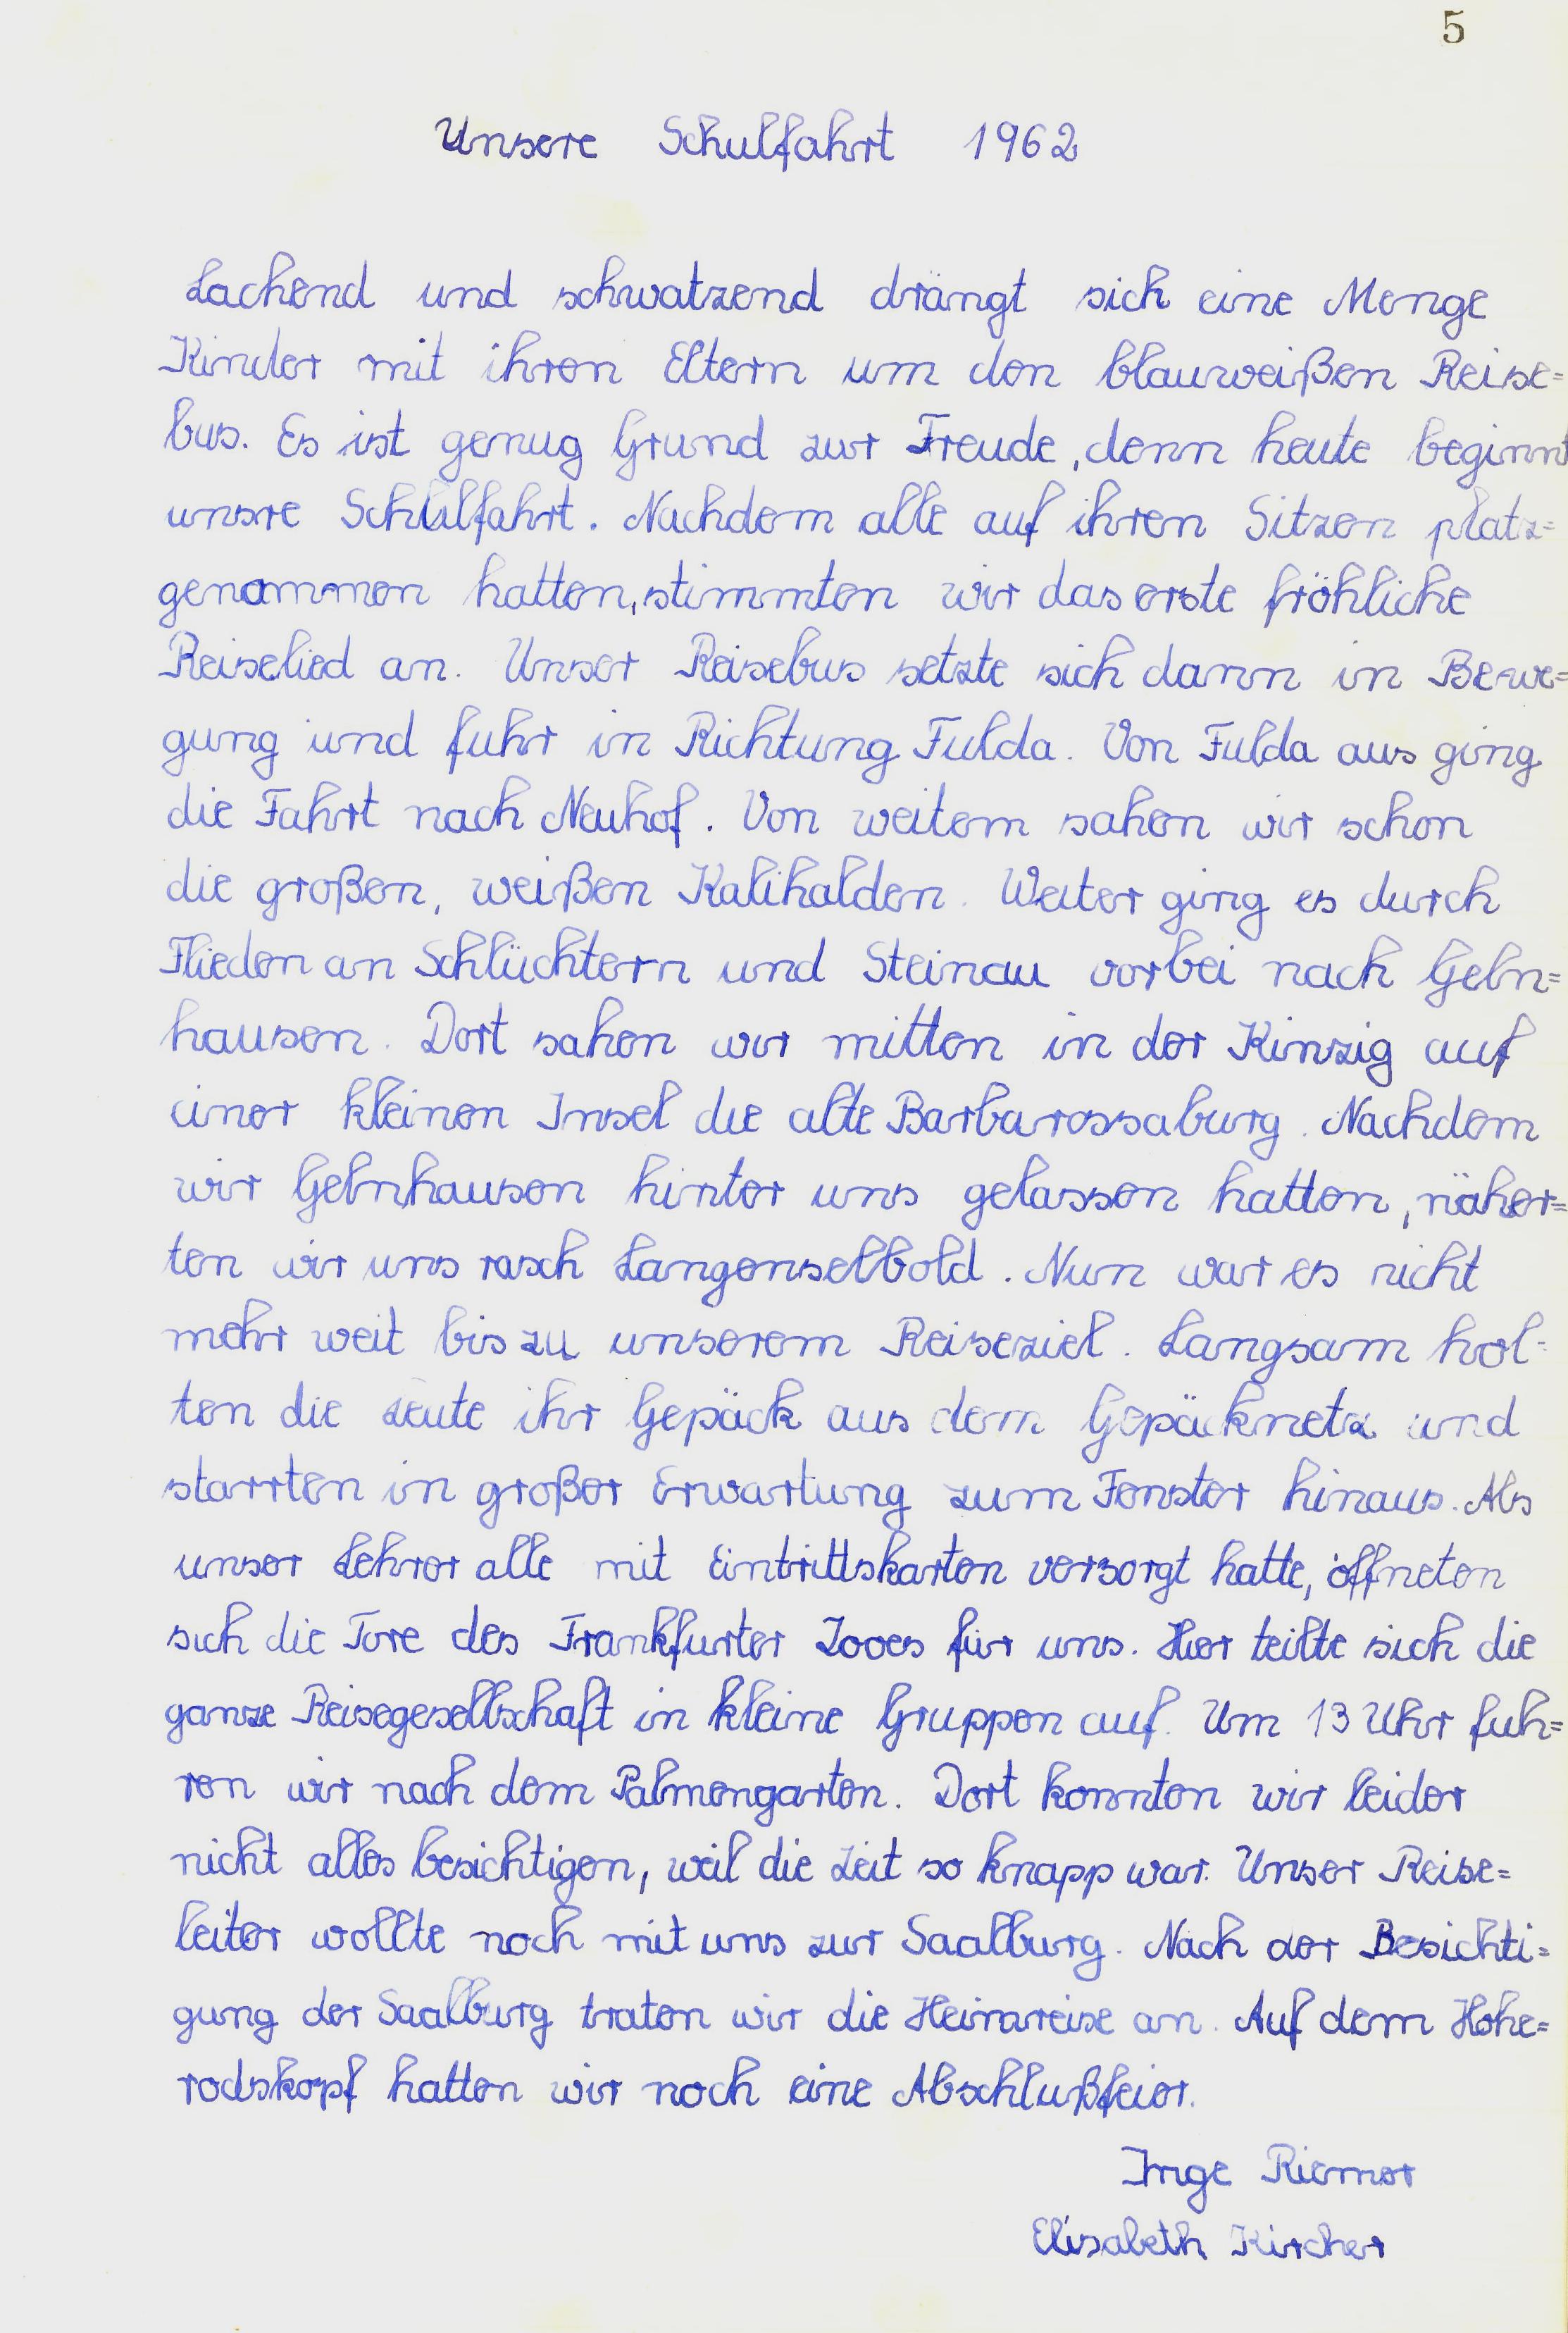 5
Unsere Schulfahrt 1962
Lachend und schwatzend drängt sich eine Menge
Kinder mit ihren Eltern um den blauweißen Reise=
bus. Es ist genug Grund zur Freude, denn heute beginnt
unsre Schulfahrt. Nachdem alle auf ihren Sitzen platz=
genommen hatten, stimmten wir das erste fröhliche
Reiselied an. Unser Reisebus setzte sich dann in Bewe=
gung und fuhr in Richtung Fulda. Von Fulda aus ging
die Fahrt nach Neuhof. Von weitem sahen wir schon
die großen, weißen Kalihalden. Weiter ging es durch
Flieden an Schlüchtern und Steinau vorbei nach Geln=
hausen. Dort sahen wir mitten in der Kinzig auf
einer kleinen Insel die alte Barbarossaburg. Nachdem
wir Gelnhausen hinter uns gelassen hatten, näher=
ten wir uns rasch Langenselbold. Nun war es nicht
mehr weit bis zu unserem Reiseziel. Langsam hol=
ten die Leute ihr Gepäck aus dem Gepäcknetz und
starrten in großer Erwartung zum Fenster hinaus. Als
unser Lehrer alle mit Eintrittskarten versorgt hatte, öffneten
sich die Tore des Frankfurter Zooes für uns. Hier teilte sich die
ganze Reisegesellschaft in kleine Gruppen auf. Um 13 Uhr fuh=
ren wir nach dem Palmengarten. Dort konnten wir leider
nicht alles besichtigen, weil die Zeit so knapp war. Unser Reise=
leiter wollte noch mit uns zur Saalburg. Nach der Besichti=
gung der Saalburg traten wir die Heimreise an. Auf dem Hohe=
rodskopf hatten wir noch eine Abschlußfeier.
Inge Riemer
Elisabeth Kircher